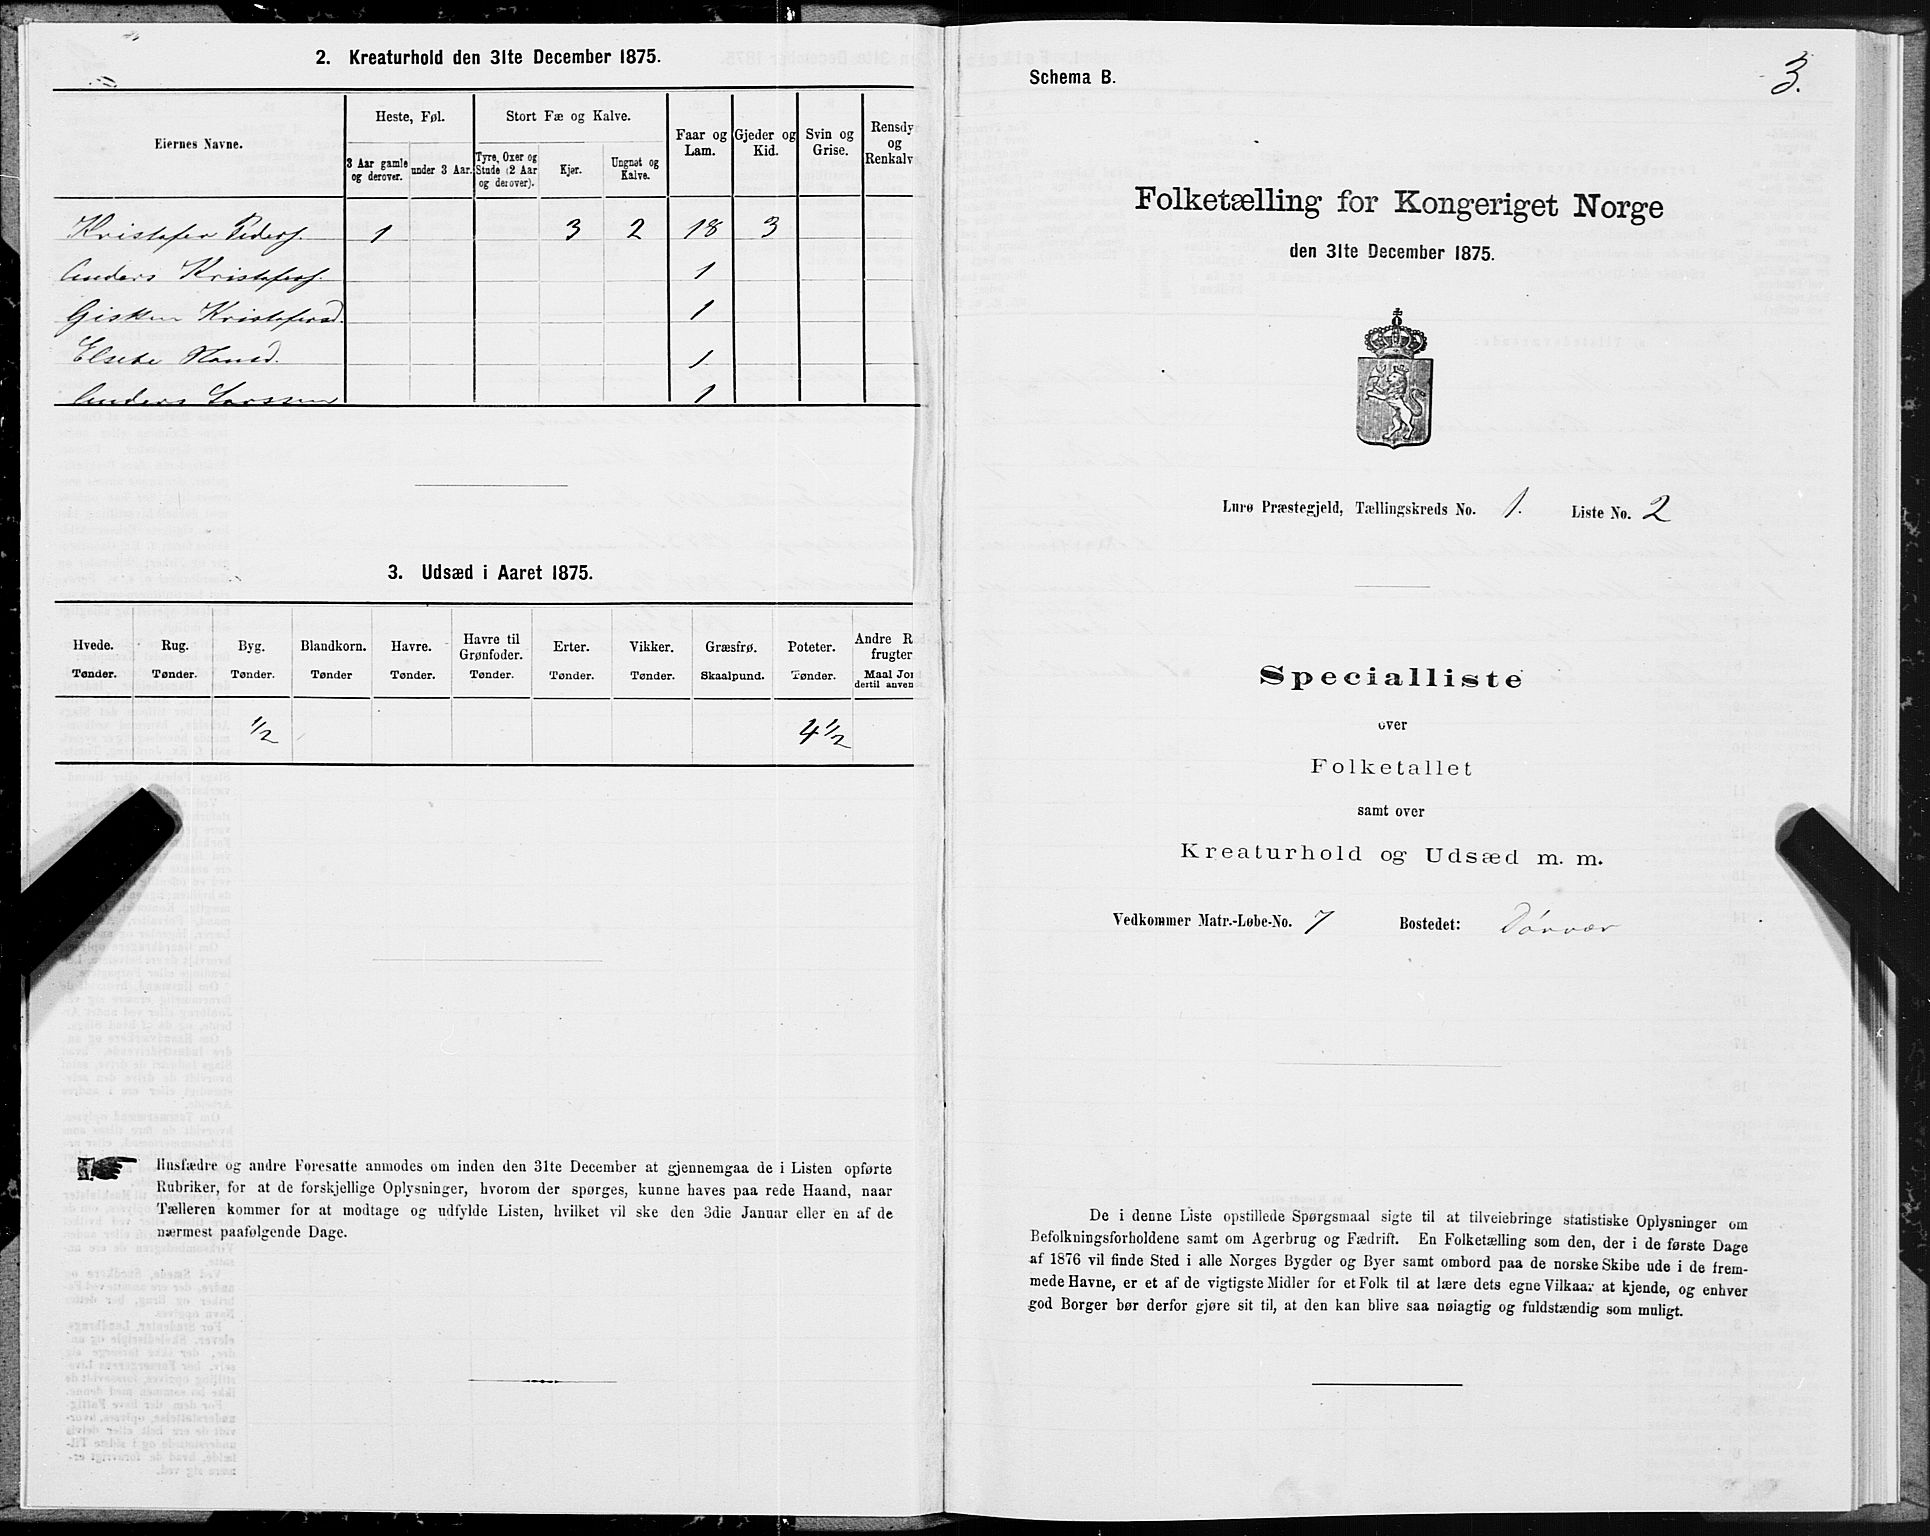 2. Kreaturhold den 31te December 1875.
Eiernes Navne.
Heste, Føl.
Stort Fæ og Kalve.
Faar og Lam.
Gjeder og Kid.
Svin og Grise.
Rensdy
og
Renkalv
3 Aar gamle og derover.
under 3 Aar.
Tyre, Oxer og Stude (2 Aar og derover).
Kjør.
Ungnøt og Kalve.
Kristofer Peders. 1 3 2 18 3
Anders Kristofers. 1
Gisken Kristofersd. 1
Elsebe Hansd. 1
Anders Larssen 1
3. Udsæd i Aaret 1875.
Hvede. Rug. Byg. Blandkorn. Havre. Havre til Grønfoder. Erter. Vikker. Græsfrø. Poteter. Andre R
frugter
Tønder. Tønder. Tønder. Tønder Tønder. Tønder. Tønder. Tønder. Skaalpund. Tønder. Maal Jor
dertil anven
1/2 4 1/2
Husfædre og andre Foresatte anmodes om inden den 31te December at gjennemgaa de i Listen opførte
Rubriker, for at de forskjellige Oplysninger, hvorom der spørges, kunne haves paa rede Haand, naar
Tælleren kommer for at modtage og udfylde Listen, hvilket vil ske den 3die Januar eller en af de
nærmest paafølgende Dage.
3.
Schema B.
Folketælling for Kongeriget Norge
den 31te December 1875.
Lurø Præstegjeld, Tællingskreds No. 1. Liste No. 2
Specialliste
over
Folketallet
samt over
Kreaturhold og Udsæd m. m.
Vedkommer Matr.-Løbe-No. 7 Bostedet: Dørvær
De i denne Liste opstillede Spørgsmaal sigte til at tilveiebringe statistiske Oplysninger om
Befolkningsforholdene samt om Agerbrug og Fædrift. En Folketælling som den, der i de første Dage
af 1876 vil finde Sted i alle Norges Bygder og Byer samt ombord paa de norske Skibe ude i de frem-
mede Havne, er et af de vigtigste Midler for et Folk til at lære dets egne Vilkaar at kjende, og enhver
god Borger bør derfor gjøre sit til, at den kan blive saa nøiagtig og fuldstændig som muligt.